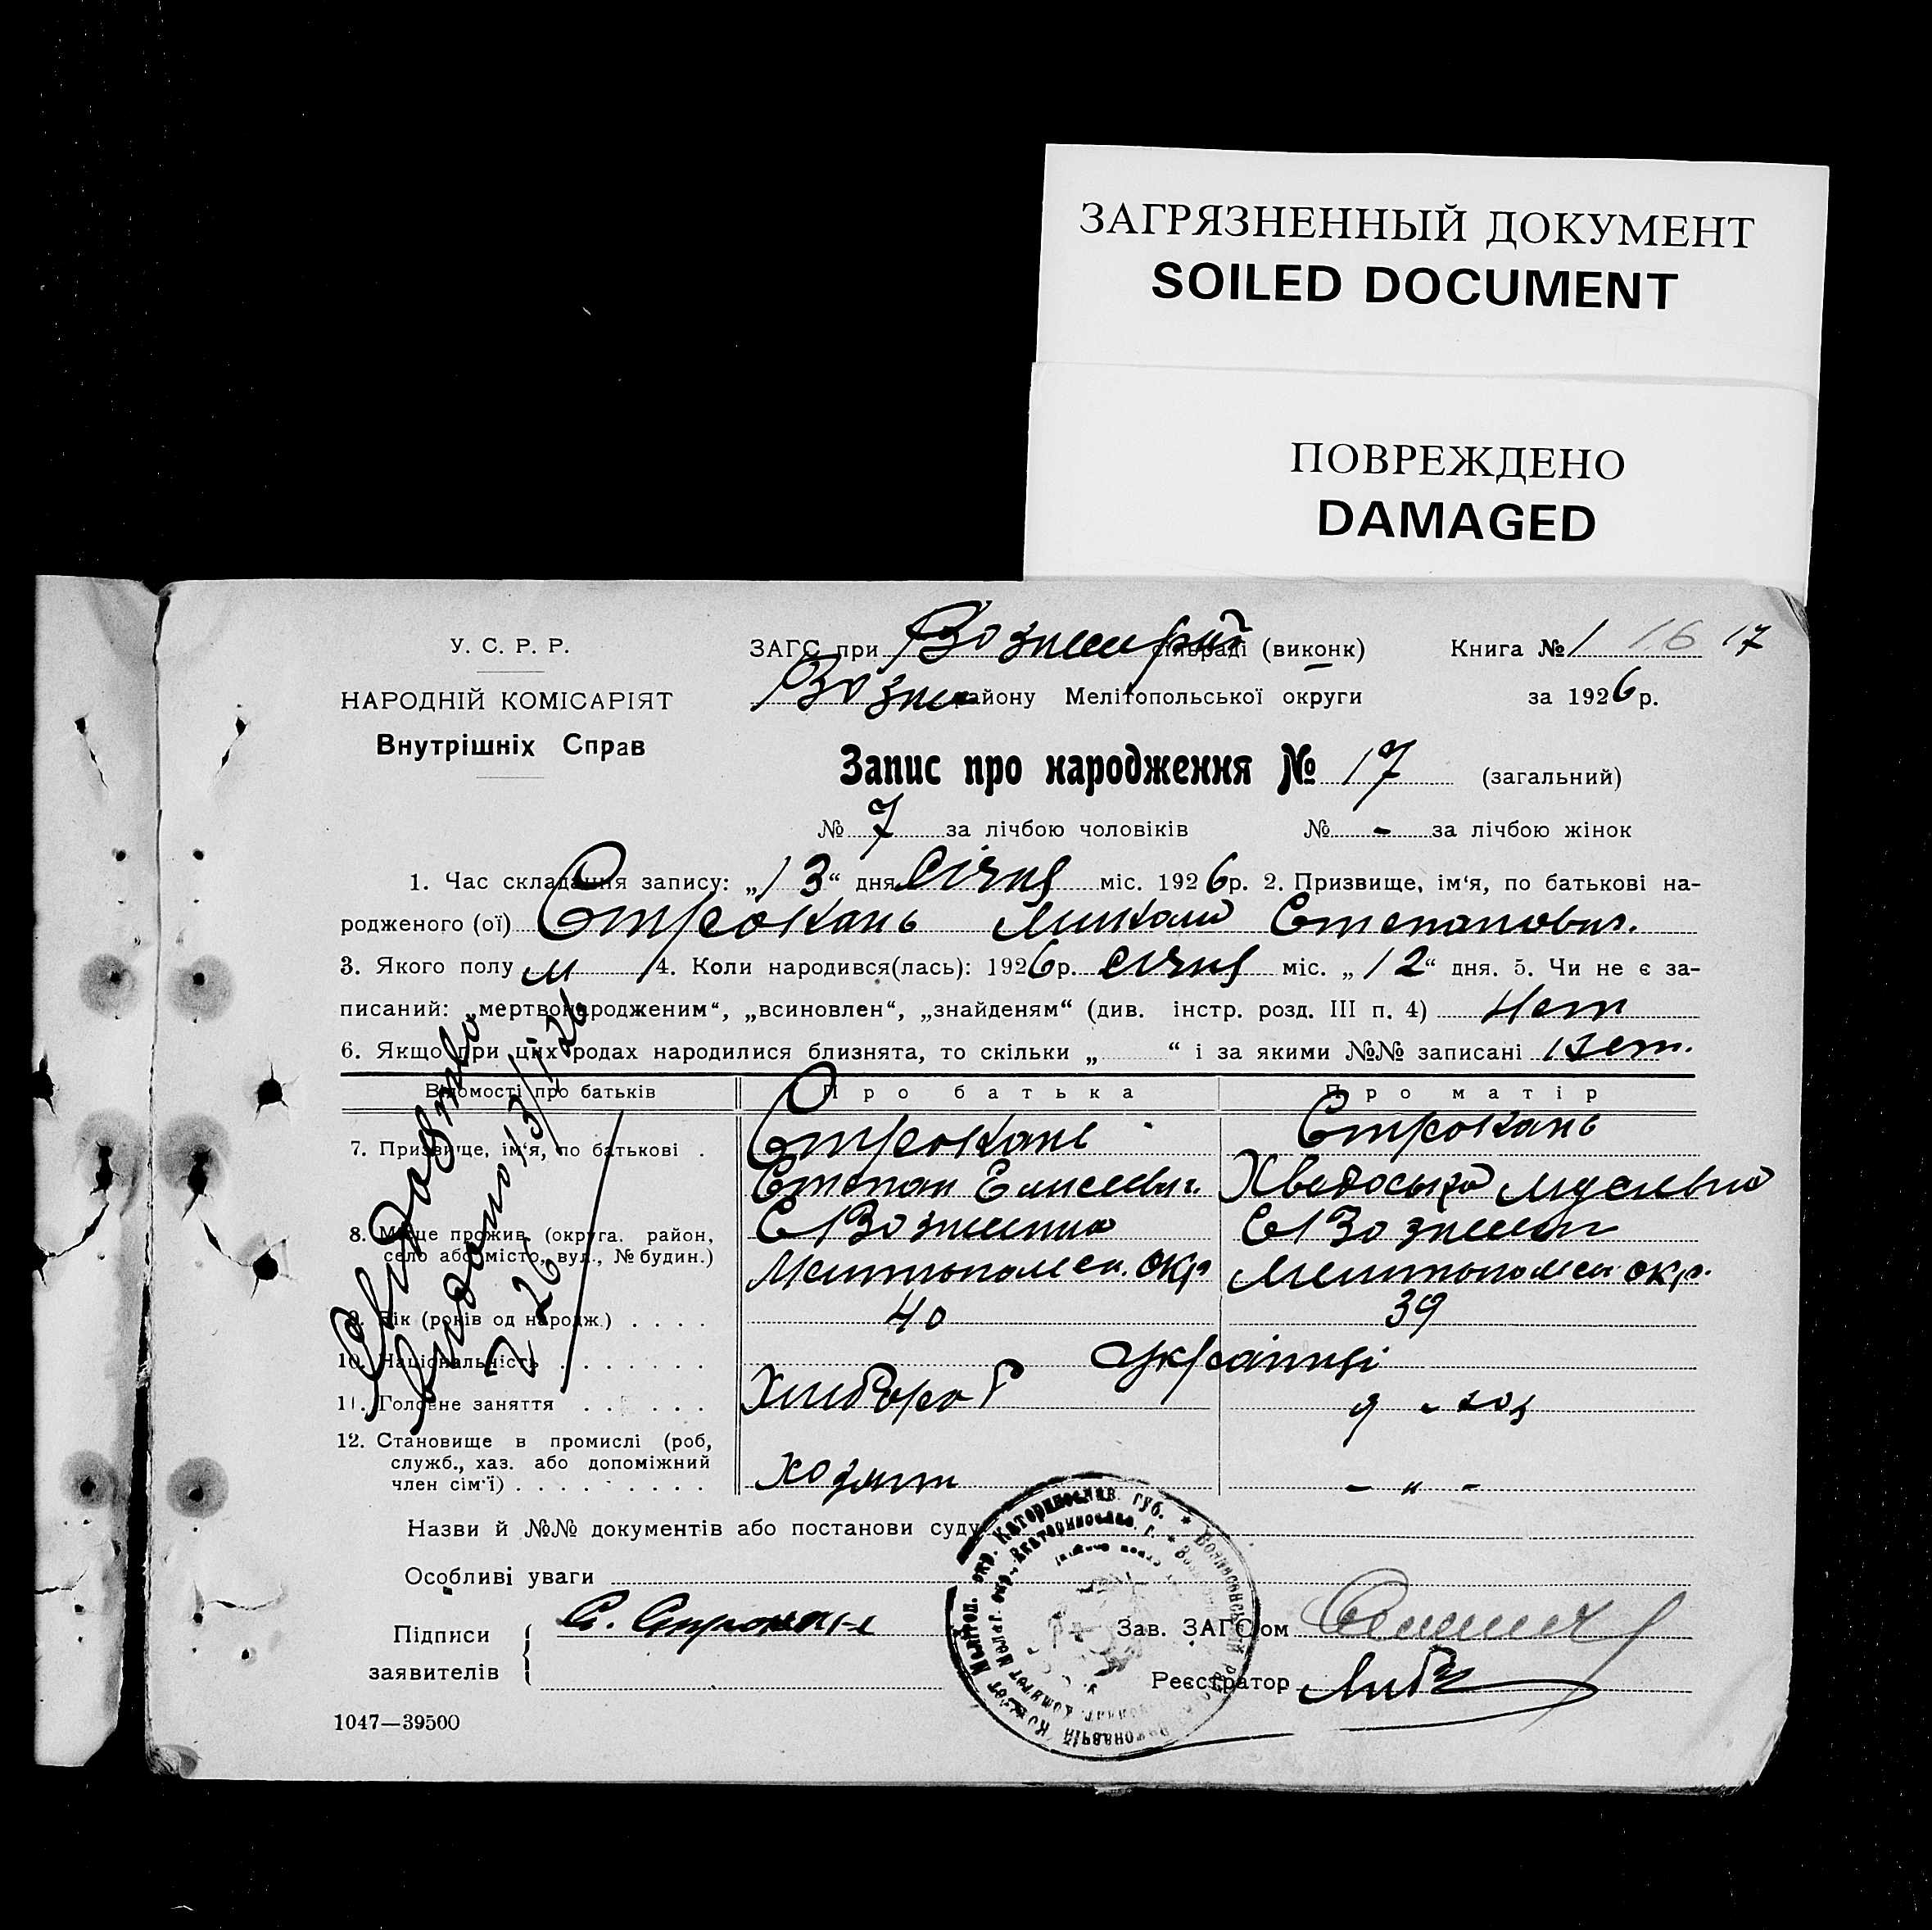 ЗАГРЯЗНЕННЫЙ ДОКУМЕНТ
SOILED DOCUMENT
ПОВРЕЖДЕНО
DAMAGED
У. С. Р. Р.
НАРОДНІЙ КОМІСАРІЯТ
Внутрішніх Справ
ЗАГС при сільраді (виконк)
Возн району Мелітопольської округи
Книга № 1 16 17
за 1926 р.
Запис про народження № 17 (загальний)
№ 7 за лічбою чоловіків № - за лічбою жінок
1. Час складання запису: „13“ дня Січня міс. 1926 р. 2. Призвище, ім‘я, по батькові на-
родженого (ої) Строкань Миколай Степанович.
3. Якого полу м 4. Коли народився(лась): 1926 р. січня міс. „12“ дня. 5. Чи не є за-
писаний: „мертвонародженим“, „всиновлен“, „знайденям“ (див. інстр. розд. III п. 4) Нет
6. Якщо при цих родах народилися близнята, то скільки „ “ і за якими №№ записані нет.
Відомості про батьків Про батька Про матір
7. Призвище, ім‘я, по батькові . Строкань Строкань
Степан Елисеевич.
8. Місце прожив. (округа. район,
село або місто, вул., № будин.)
Мелитопольск. окр Мелитопольск окр.
9. Вік (років од народж.) . . . . 40 39
10. Національність . . . . . . . українці
11. Головне заняття . . . . . . Хлібороб
12. Становище в промислі (роб,
служб., хаз. або допоміжний
член сім‘ї) . . . . . . . . . - „ -
Свидоцтво
Видано 13/I 26
Назви й №№ документів або постанови суду
Особливі уваги
Підписи
заявителів
С. Строкань
Зав. ЗАГСом
Реєстратор
1047—39500